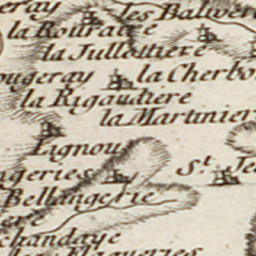 eray les Balivere
la Rouraire
la Jullottiere
ougeray la Cherbo
la Rigaudiere
la Martinier
Lignou
geries St. Je
Bellangerie
ere
chandaye
les Flagueries